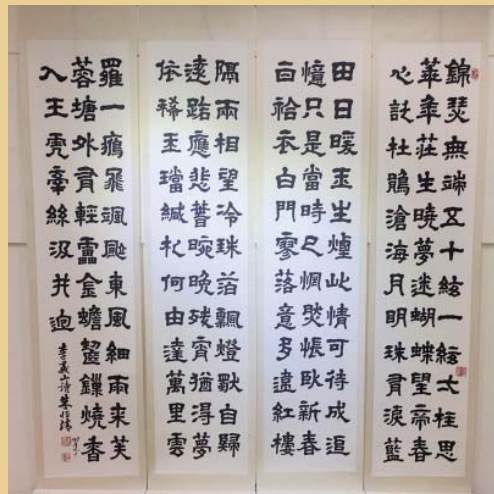 錦瑟無端五十絃一絃弌柱思
華年莊生曉夢迷蝴蝶望帝春
心託杜鵑滄海月明珠有淚藍
田日暖玉生煙此情可待成追
憶只是當時已惘然悵臥新春
白袷衣白門寥落意多遠紅樓
隔雨相望冷珠箔飄燈獨自歸
遠路應悲春晼晚殘宵猶得夢
依稀玉璫緘札何由達萬里雲
羅一雁飛颯颯東風細雨來芙
蓉塘外有輕雷金蟾齧鎖燒香
入玉虎牽絲汲井迴
李義山詩